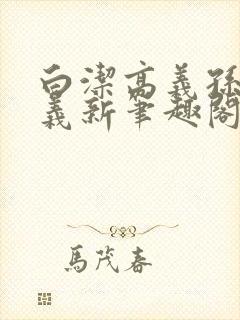 白潔高義孫
義新筆趣閣
馬茂春